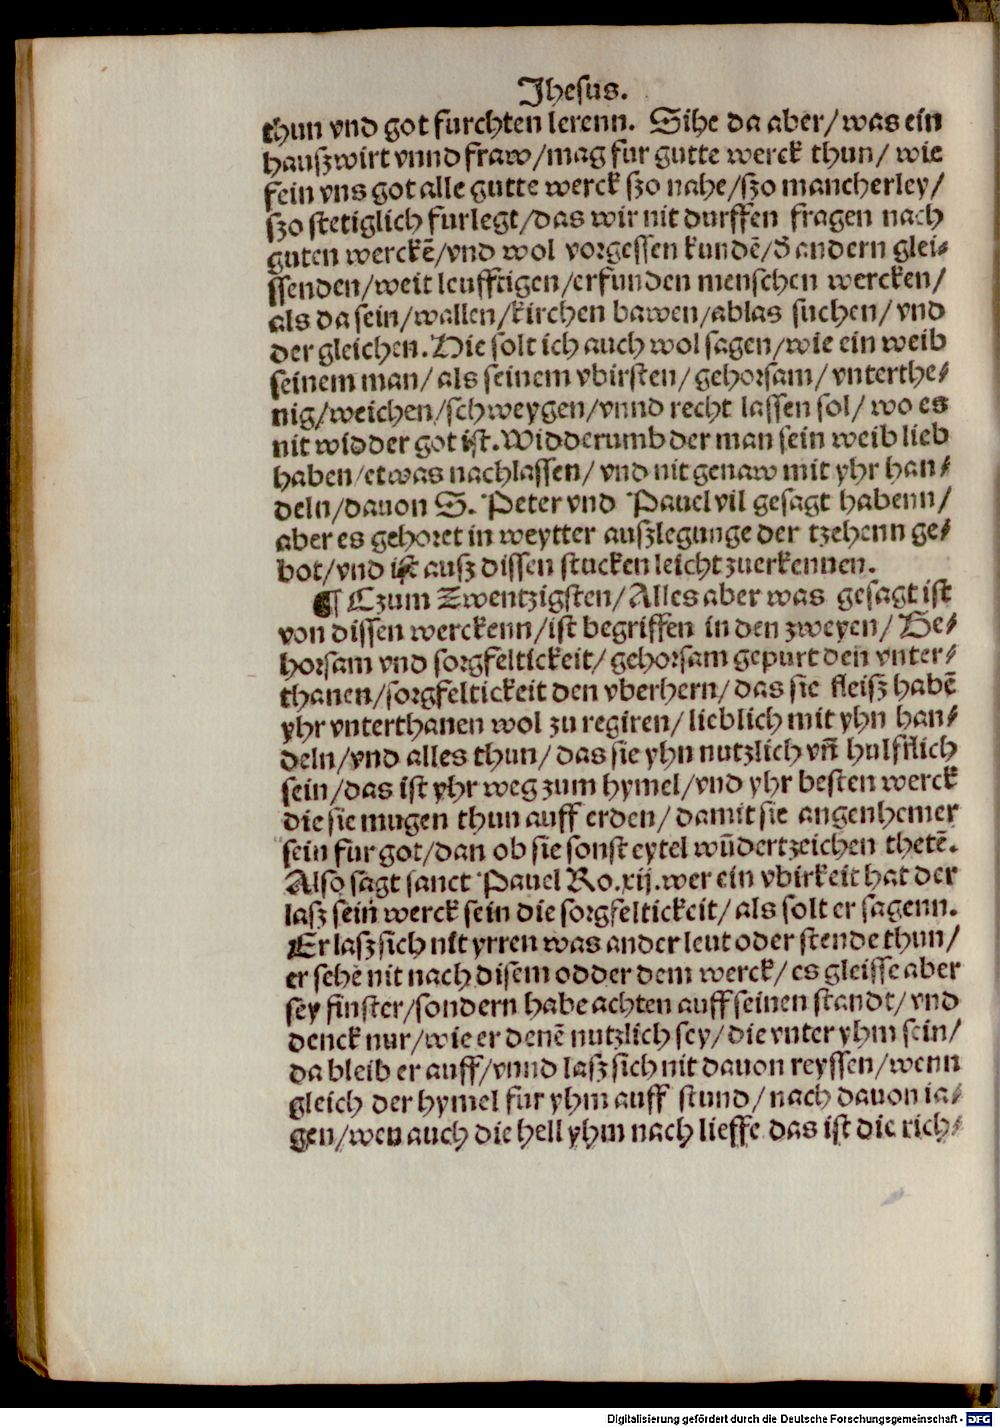 Jhesus.
thun vnd got furchten lerenn. Sihe da aber/was ein
hauszwirt vnnd fraw/mag fur gutte werck thun/ wie
fein vns got alle gutte werck szo nahe/szo mancherley/
szo stetiglich furlegt/das wir nit durffen fragen nach
guten werckē/vnd wol vorgessen kundē/d̛ andern glei⸗
ssenden/weit leufftigen/erfunden menschen wercken/
als da sein/wallen/kirchen bawen/ablas suchen/ vnd
der gleichen. Hie solt ich auch wol sagen/wie ein weib
seinem man/ als seinem vbirsten/ gehorsam/ vnterthe⸗
nig/weichen/schweygen/vnnd recht lassen sol/ wo es
nit widder got ist. Widderumb der man sein weib lieb
haben/etwas nachlassen/ vnd nit genaw mit yhr han⸗
deln/dauon S. Peter vnd Pauel vil gesagt habenn/
aber es gehoret in weytter auszlegunge der tzehenn ge⸗
bot/vnd ist ausz dissen stucken leicht zuerkennen.
¶ Czum Zwentzigsten/Alles aber was gesagt ist
von dissen werckenn/ist begriffen in den zweyen/ Ge⸗
horsam vnd sorgfeltickeit/ gehorsam gepurt den vnter⸗
thanen/sorgfeltickeit den vberhern/ das sie fleisz habē
yhr vnterthanen wol zu regiren/ lieblich mit yhn han⸗
deln/vnd alles thun/ das sie yhn nutzlich vn̄ hulfflich
sein/das ist yhr weg zum hymel/vnd yhr besten werck
die sie mugen thun auff erden/ damit sie angenhemer
sein fur got/dan ob sie sonst eytel wūdertzeichen thetē.
Also sagt sanct Pauel Ro.xij. wer ein vbirkeit hat der
lasz sein werck sein die sorgfeltickeit/ als solt er sagenn.
Er lasz sich nit yrren was ander leut oder stende thun/
er sehe nit nach disem odder dem werck/ es gleisse aber
sey finster/sondern habe achten auff seinen standt/ vnd
denck nur/wie er denē nutzlich sey/ die vnter yhm sein/
da bleib er auff/vnnd lasz sich nit dauon reyssen/wenn
gleich der hymel fur yhm auff stund/ nach dauon ia⸗
gen/wen auch die hell yhm nach lieffe das ist die rich⸗
Digitalisierung gefördert durch die Deutsche Forschungsgemeinschaft - DFG